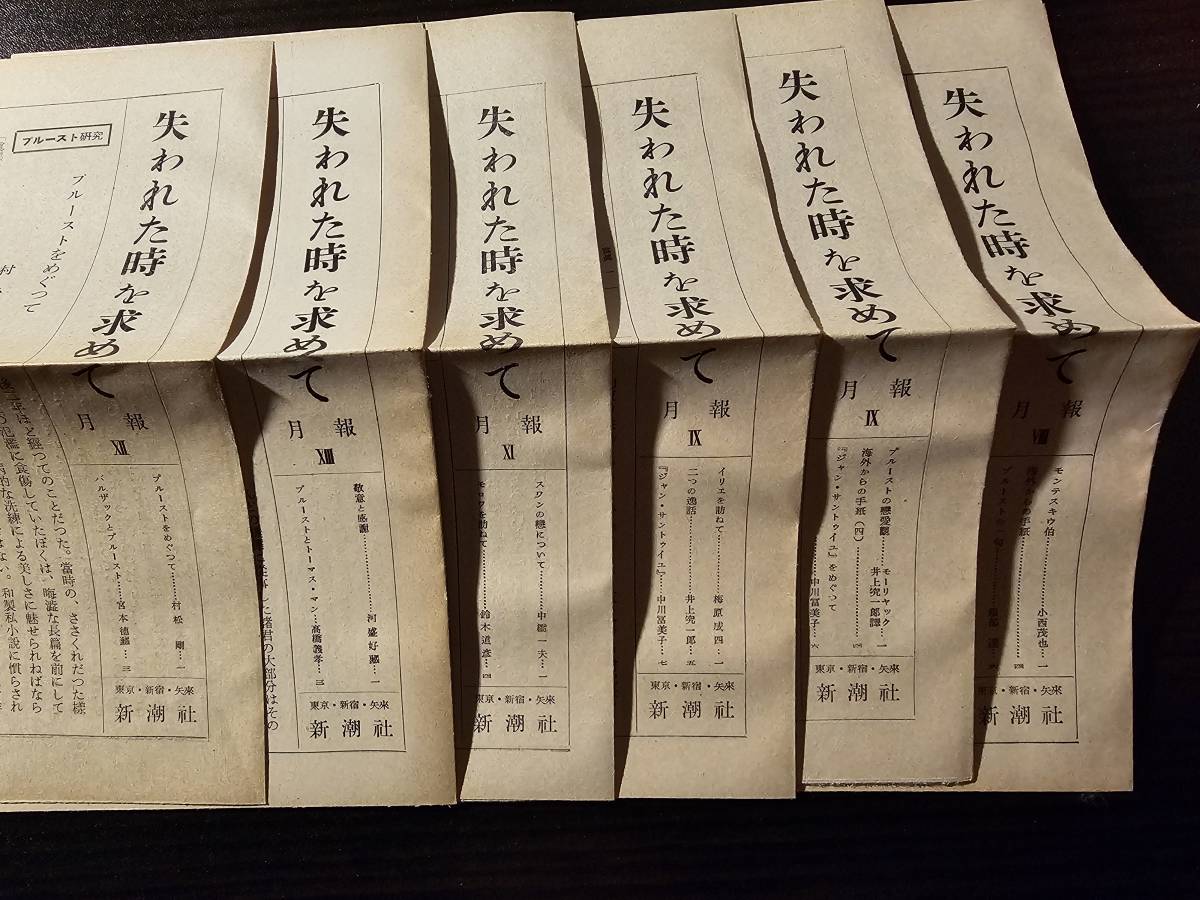 失われた時を求めて
月報
Ⅷ
モンテスキウ伯………小西茂也…一
海外からの手紙
四
東京・新宿・矢来
新潮社
失われた時を求めて
月報
Ⅸ
プルーストの戀愛觀……モーリヤック…一
井上究一郎譯
海外からの手紙（四）………四
『ジャン・サントゥイユ』をめぐつて
中川冨美子…六
東京・新宿・矢来
新潮社
失われた時を求めて
月報
Ⅸ
イリエを訪ねて………梅原成四…一
二つの逸話………井上究一郎…五
『ジャン・サントゥイユ』………中川冨美子…七
東京・新宿・矢来
新潮社
失われた時を求めて
月報
Ⅺ
スワンの戀について………中一夫…一
を訪ねて………鈴木道彦…四
東京・新宿・矢来
新潮社
失われた時を求めて
月報
XIII
敬意と感謝………河盛好藏…一
プルーストとトーマス・マン…高橋義孝…三
東京・新宿・矢来
新潮社
諸君の大部分はその
失われた時を求めて
月報
Ⅻ
プルーストをめぐつて………村松 剛…一
バルザックとプルースト………宮本徳…三
東京・新宿・矢来
新潮社
プルースト研究
プルーストをめぐつて
村
ほど經つてのことだつた。當時の、ささくれだつた様
氾濫に食傷していたぼくは、晦澁な長篇を前にして
的な洗練による美しさに魅せられねばなら
ない。和製私小説に慣らされ